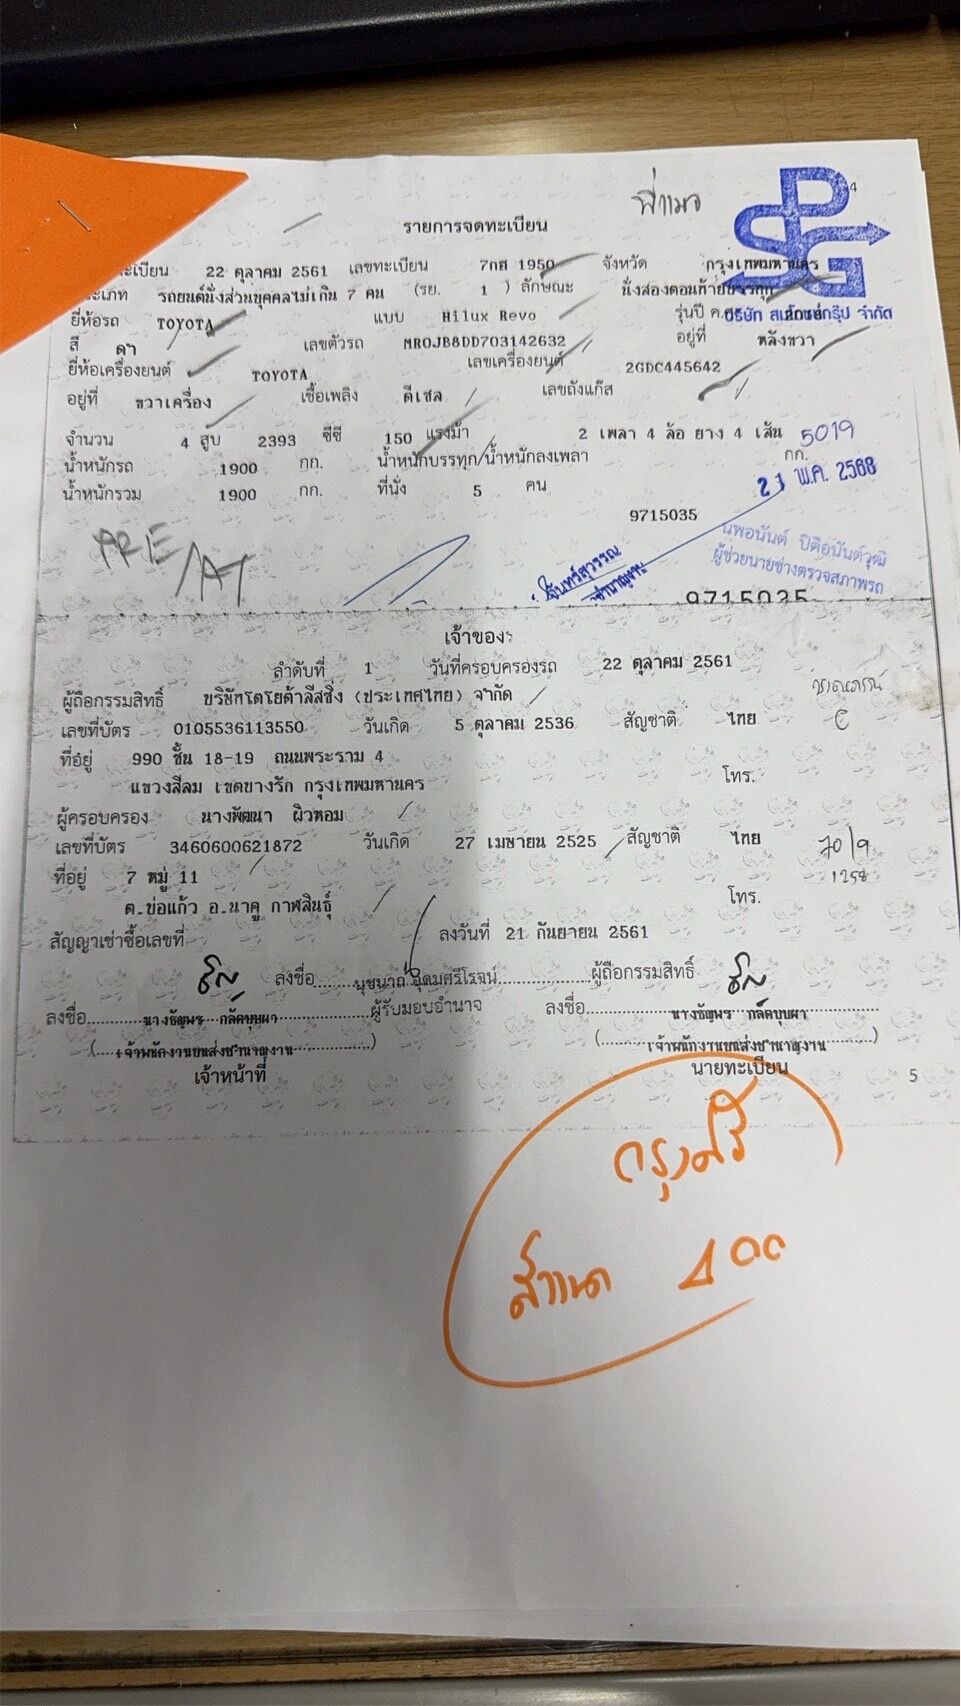 4
พี่เมจ
รายการจดทะเบียน
ทะเบียน 22 ตุลาคม 2561 เลขทะเบียน 7กฮ 1950 จังหวัด กรุงเทพมหานคร
ประเภท รถยนต์นั่งส่วนบุคคลไม่เกิน 7 คน (รย. 1 ) ลักษณะ นั่งสองตอนท้ายบรรทุก
ยี่ห้อรถ TOYOTA แบบ Hilux Revo รุ่นปี ค.ศ.
บริษัท จำกัด
สี ดำ เลขตัวรถ MR0JB8DD703142632 อยู่ที่ หลังขวา
ยี่ห้อเครื่องยนต์ TOYOTA เลขเครื่องยนต์ 2GDC445642
อยู่ที่ ขวาเครื่อง เชื้อเพลิง ดีเซล เลขถังแก๊ส
จำนวน 4 สูบ 2393 ซีซี 150 แรงม้า 2 เพลา 4 ล้อ ยาง 4 เส้น 5019
น้ำหนักรถ 1900 กก. น้ำหนักบรรทุก/น้ำหนักลงเพลา กก.
น้ำหนักรวม 1900 กก. ที่นั่ง 5 คน
21 พ.ค. 2568
9715035
นพอนันต์ ปิติอนันต์วุฒิ
ผู้ช่วยนายช่างตรวจสภาพรถ
PRE/AT
จันทร์สุวรรณ
ชำนาญงาน
9715035
เจ้าของ
ลำดับที่ 1 วันที่ครอบครองรถ 22 ตุลาคม 2561
ผู้ถือกรรมสิทธิ์ บริษัทโตโยต้าลีสซิ่ง (ประเทศไทย) จำกัด
เลขที่บัตร 0105536113550 วันเกิด 5 ตุลาคม 2536 สัญชาติ ไทย
ที่อยู่ 990 ชั้น 18-19 ถนนพระราม 4
แขวงสีลม เขตบางรัก กรุงเทพมหานคร โทร.
ผู้ครอบครอง นางพัฒนา ผิวหอม
เลขที่บัตร 3460600621872 วันเกิด 27 เมษายน 2525 สัญชาติ ไทย
70/9
1258
ที่อยู่ 7 หมู่ 11
ต.บ่อแก้ว อ.นาคู กาฬสินธุ์ โทร.
สัญญาเช่าซื้อเลขที่ ลงวันที่ 21 กันยายน 2561
ลงชื่อ นุชนาถ อุดมศรีโรจน์ ผู้ถือกรรมสิทธิ์
ลงชื่อ นางธัญพร กลัดบุบผา ผู้รับมอบอำนาจ ลงชื่อ นางธัญพร กลัดบุบผา
(เจ้าพนักงานขนส่งชำนาญงาน) (เจ้าพนักงานขนส่งชำนาญงาน)
เจ้าหน้าที่ นายทะเบียน
5
กรุงศรี
สำเนา 400